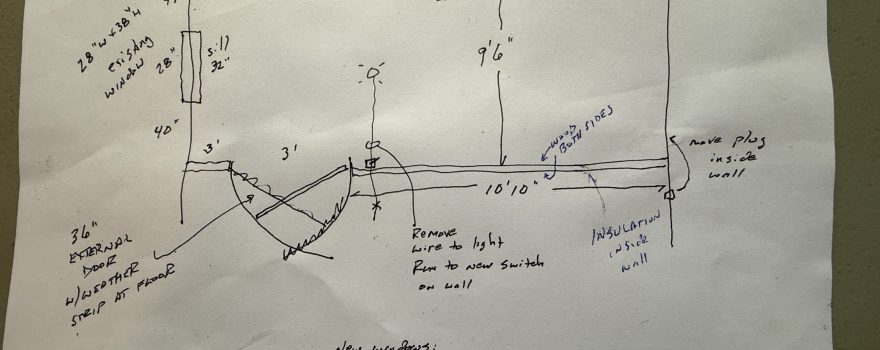 28"W x 38"H
existing
window
28"
sill
32"
9'6"
40"
3'
3'
WOOD
BOTH SIDES
move plug
inside
wall
10'10"
36"
EXTERNAL
DOOR
W/WEATHER
STRIP AT FLOOR
Remove
wire to light
Run to new switch
on wall
INSULATION
inside
wall
New windows: